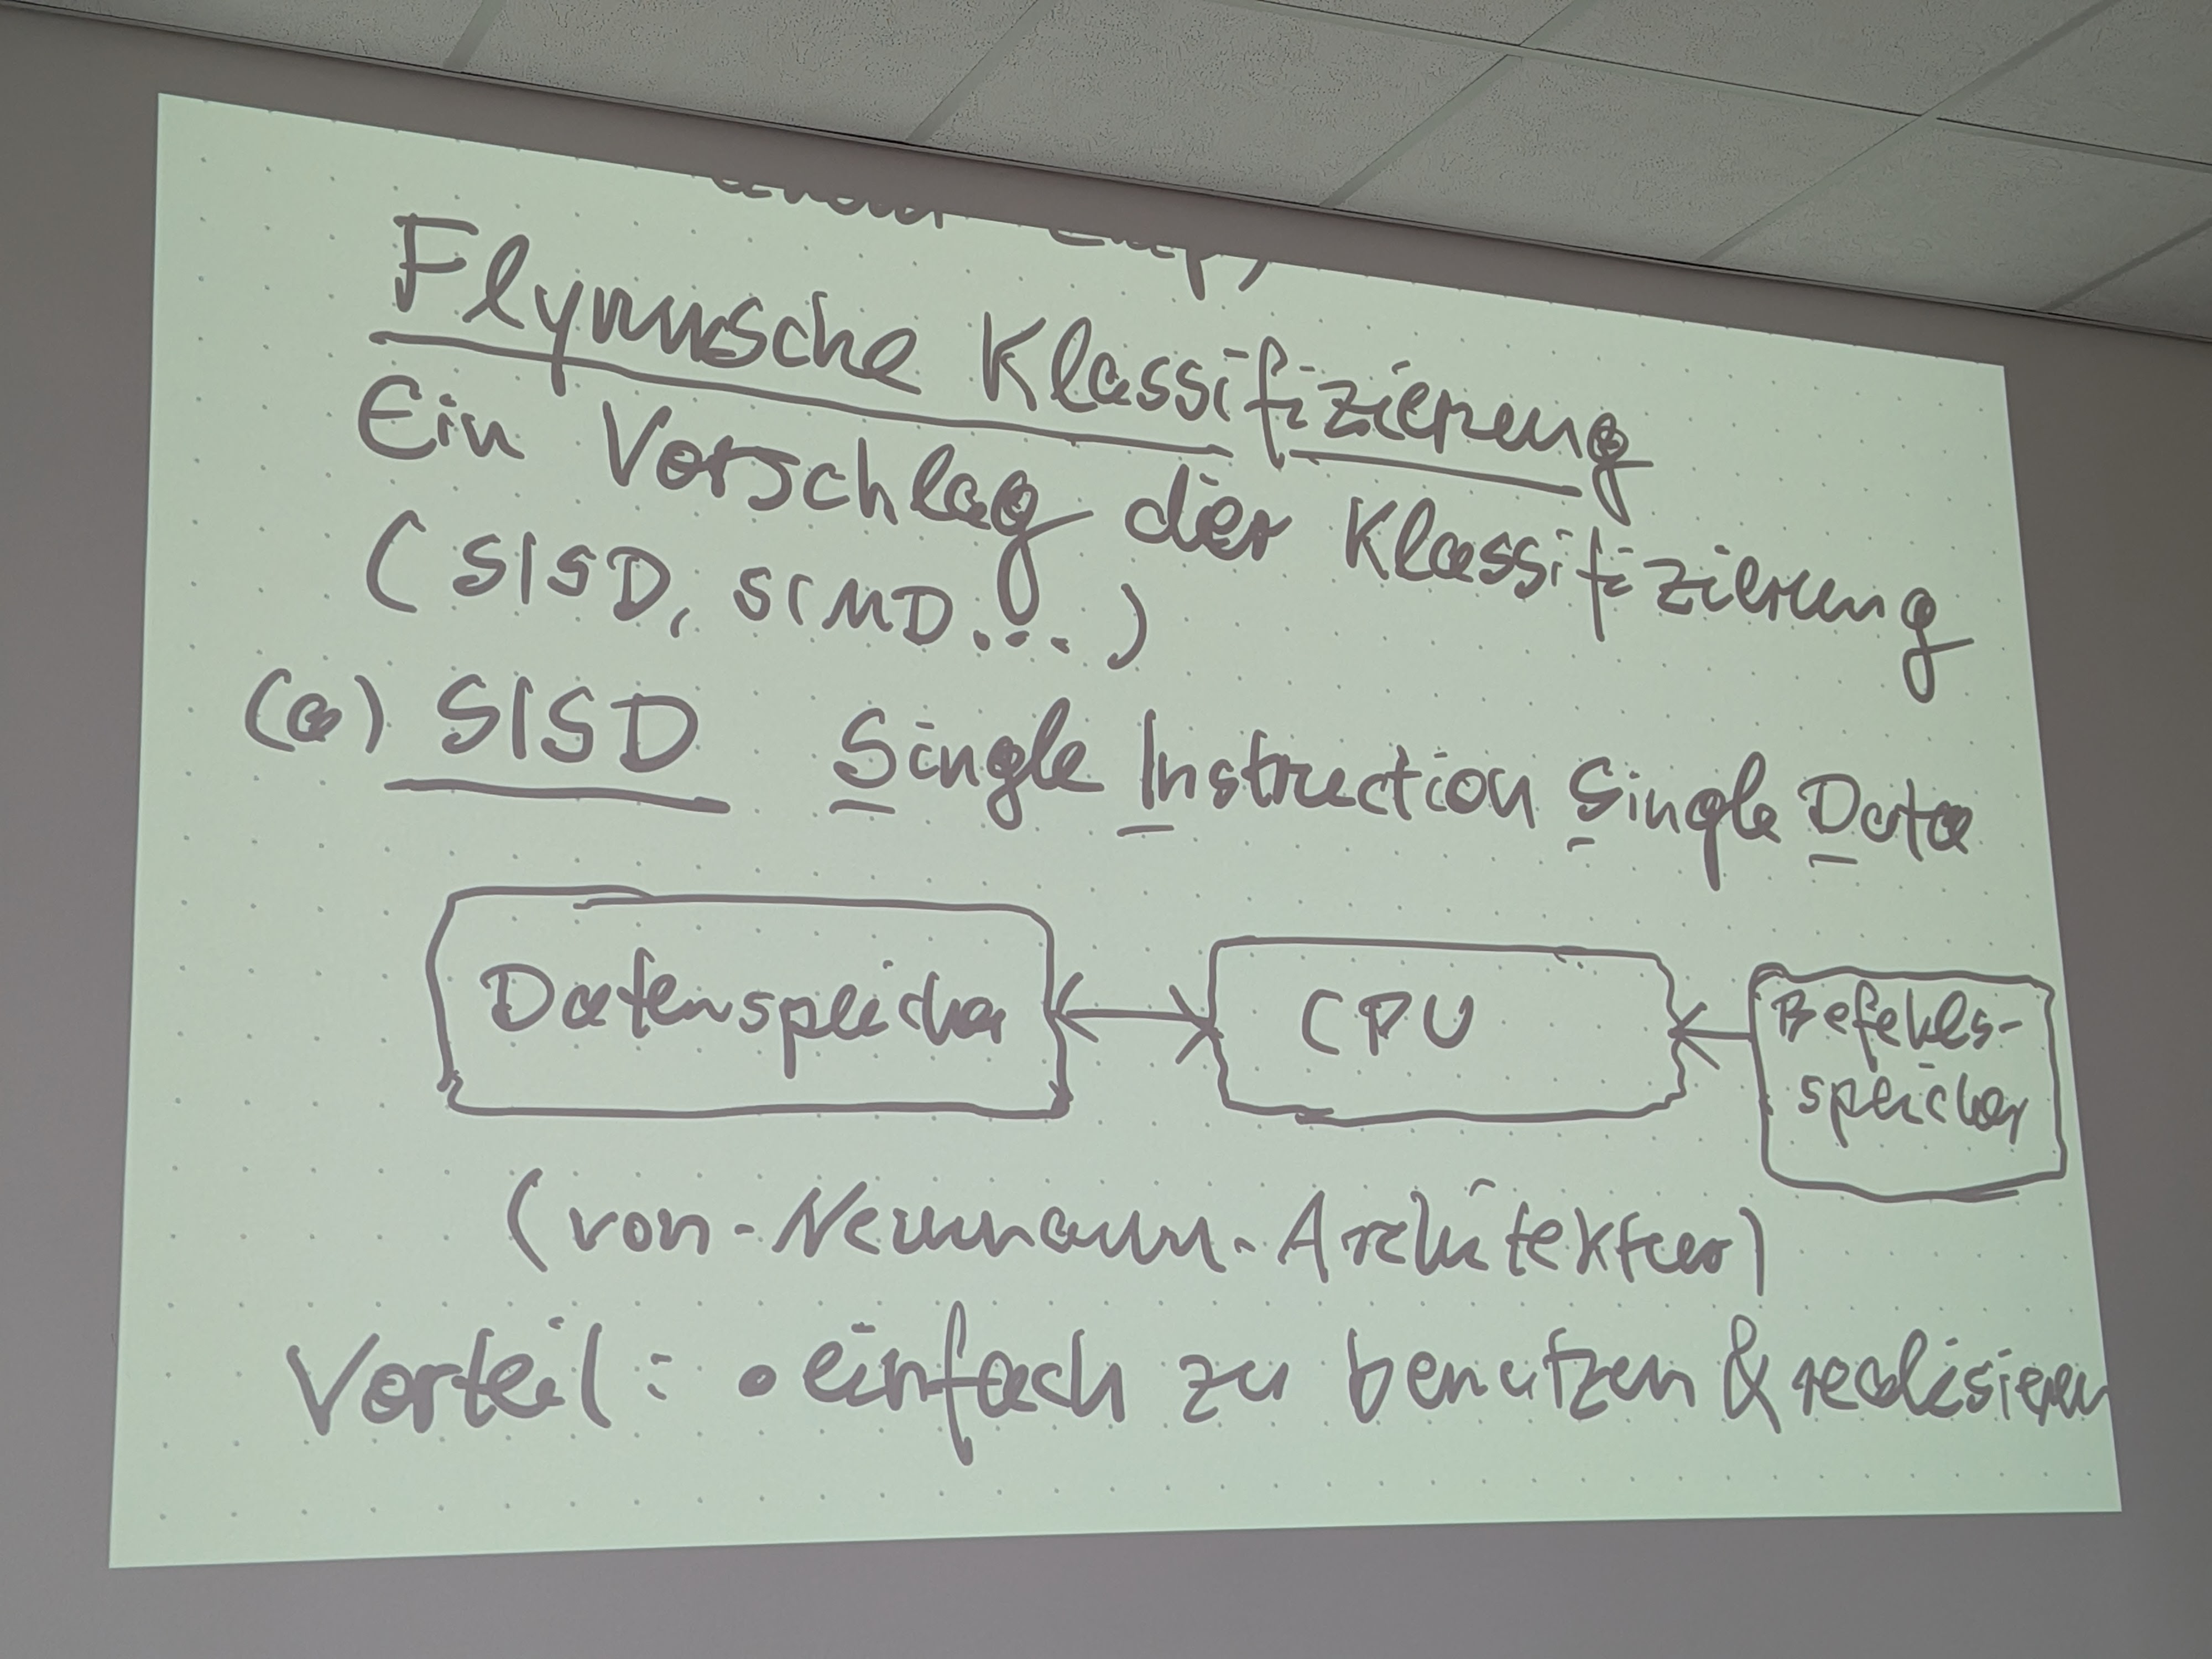 Flynnsche Klassifizierung
Ein Vorschlag der Klassifizierung
(SISD, SIMD...)
(a) SISD Single Instruction Single Data
Datenspeicher
CPU
Befehls-
speicher
(von-Neumann-Architektur)
Vorteil: • einfach zu benutzen & realisieren